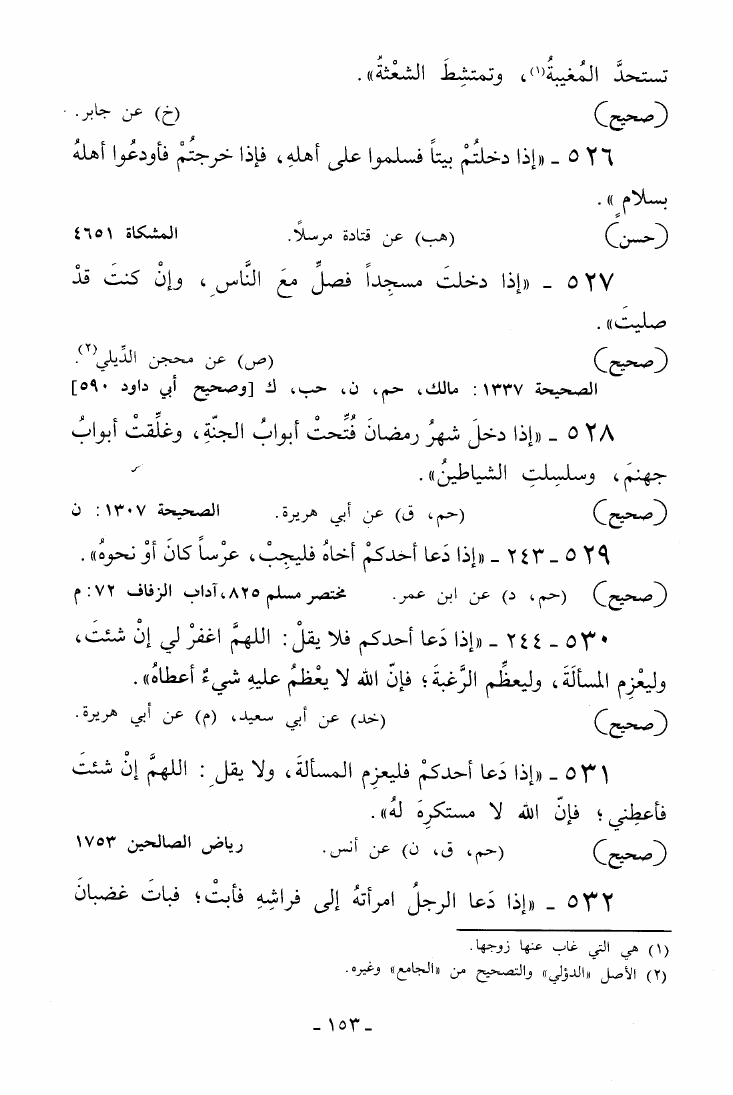 تستحدَّ المُغيبةُ(١)، وتمتشِطَ الشعْثةُ».
(صحيح) (خ) عن جابر.
٥٢٦ ـ «إذا دخلتُمْ بيتاً فسلموا على أهلهِ، فإذا خرجتُمْ فأودعُوا أهلهُ
بسلامٍ».
(حسن) (هب) عن قتادة مرسلاً. المشكاة ٤٦٥١
٥٢٧ ـ «إذا دخلتَ مسجِداً فصلِّ معَ النَّاسِ، وإنْ كنتَ قدْ
صليتَ».
(صحيح) (ص) عن محجن الدِّيلي(٢).
الصحيحة ١٣٣٧: مالك، حم، ن، حب، ك [وصحيح أبي داود ٥٩٠]
٥٢٨ ـ «إذا دخلَ شهرُ رمضانَ فُتِّحتْ أبوابُ الجنّةِ، وغلِّقتْ أبوابُ
جهنمَ، وسلسِلتِ الشياطينُ».
(صحيح) (حم، ق) عن أبي هريرة. الصحيحة ١٣٠٧: ن
٥٢٩ ـ ٢٤٣ ـ «إذا دَعا أحدكمْ أخاهُ فليجِبْ، عرْساً كانَ أوْ نحوهُ».
(صحيح) (حم، د) عن ابن عمر. مختصر مسلم ٨٢٥، آداب الزفاف ٧٢: م
٥٣٠ ـ ٢٤٤ ـ «إذا دَعا أحدكم فلا يقلْ: اللهمَّ اغفرْ لي إنْ شئتَ،
وليعْزِم المسألَةَ، وليعظِّم الرَّغبةَ؛ فإنّ الله لا يعْظمُ عليهِ شيءٌ أعطاهُ».
(صحيح) (خد) عن أبي سعيد، (م) عن أبي هريرة.
٥٣١ ـ «إذا دَعا أحدكمْ فليعزِم المسألةَ، ولا يقلِ: اللهمَّ إنْ شئتَ
فأعطِني؛ فإنّ الله لا مستكرِهَ لهُ».
(صحيح) (حم، ق، ن) عن أنس. رياض الصالحين ١٧٥٣
٥٣٢ ـ «إذا دَعا الرجلُ امرأتهُ إلى فراشِهِ فأبتْ؛ فباتَ غضبانَ
(١) هي التي غاب عنها زوجها.
(٢) الأصل «الدؤلي» والتصحيح من «الجامع» وغيره.
ـ ١٥٣ ـ